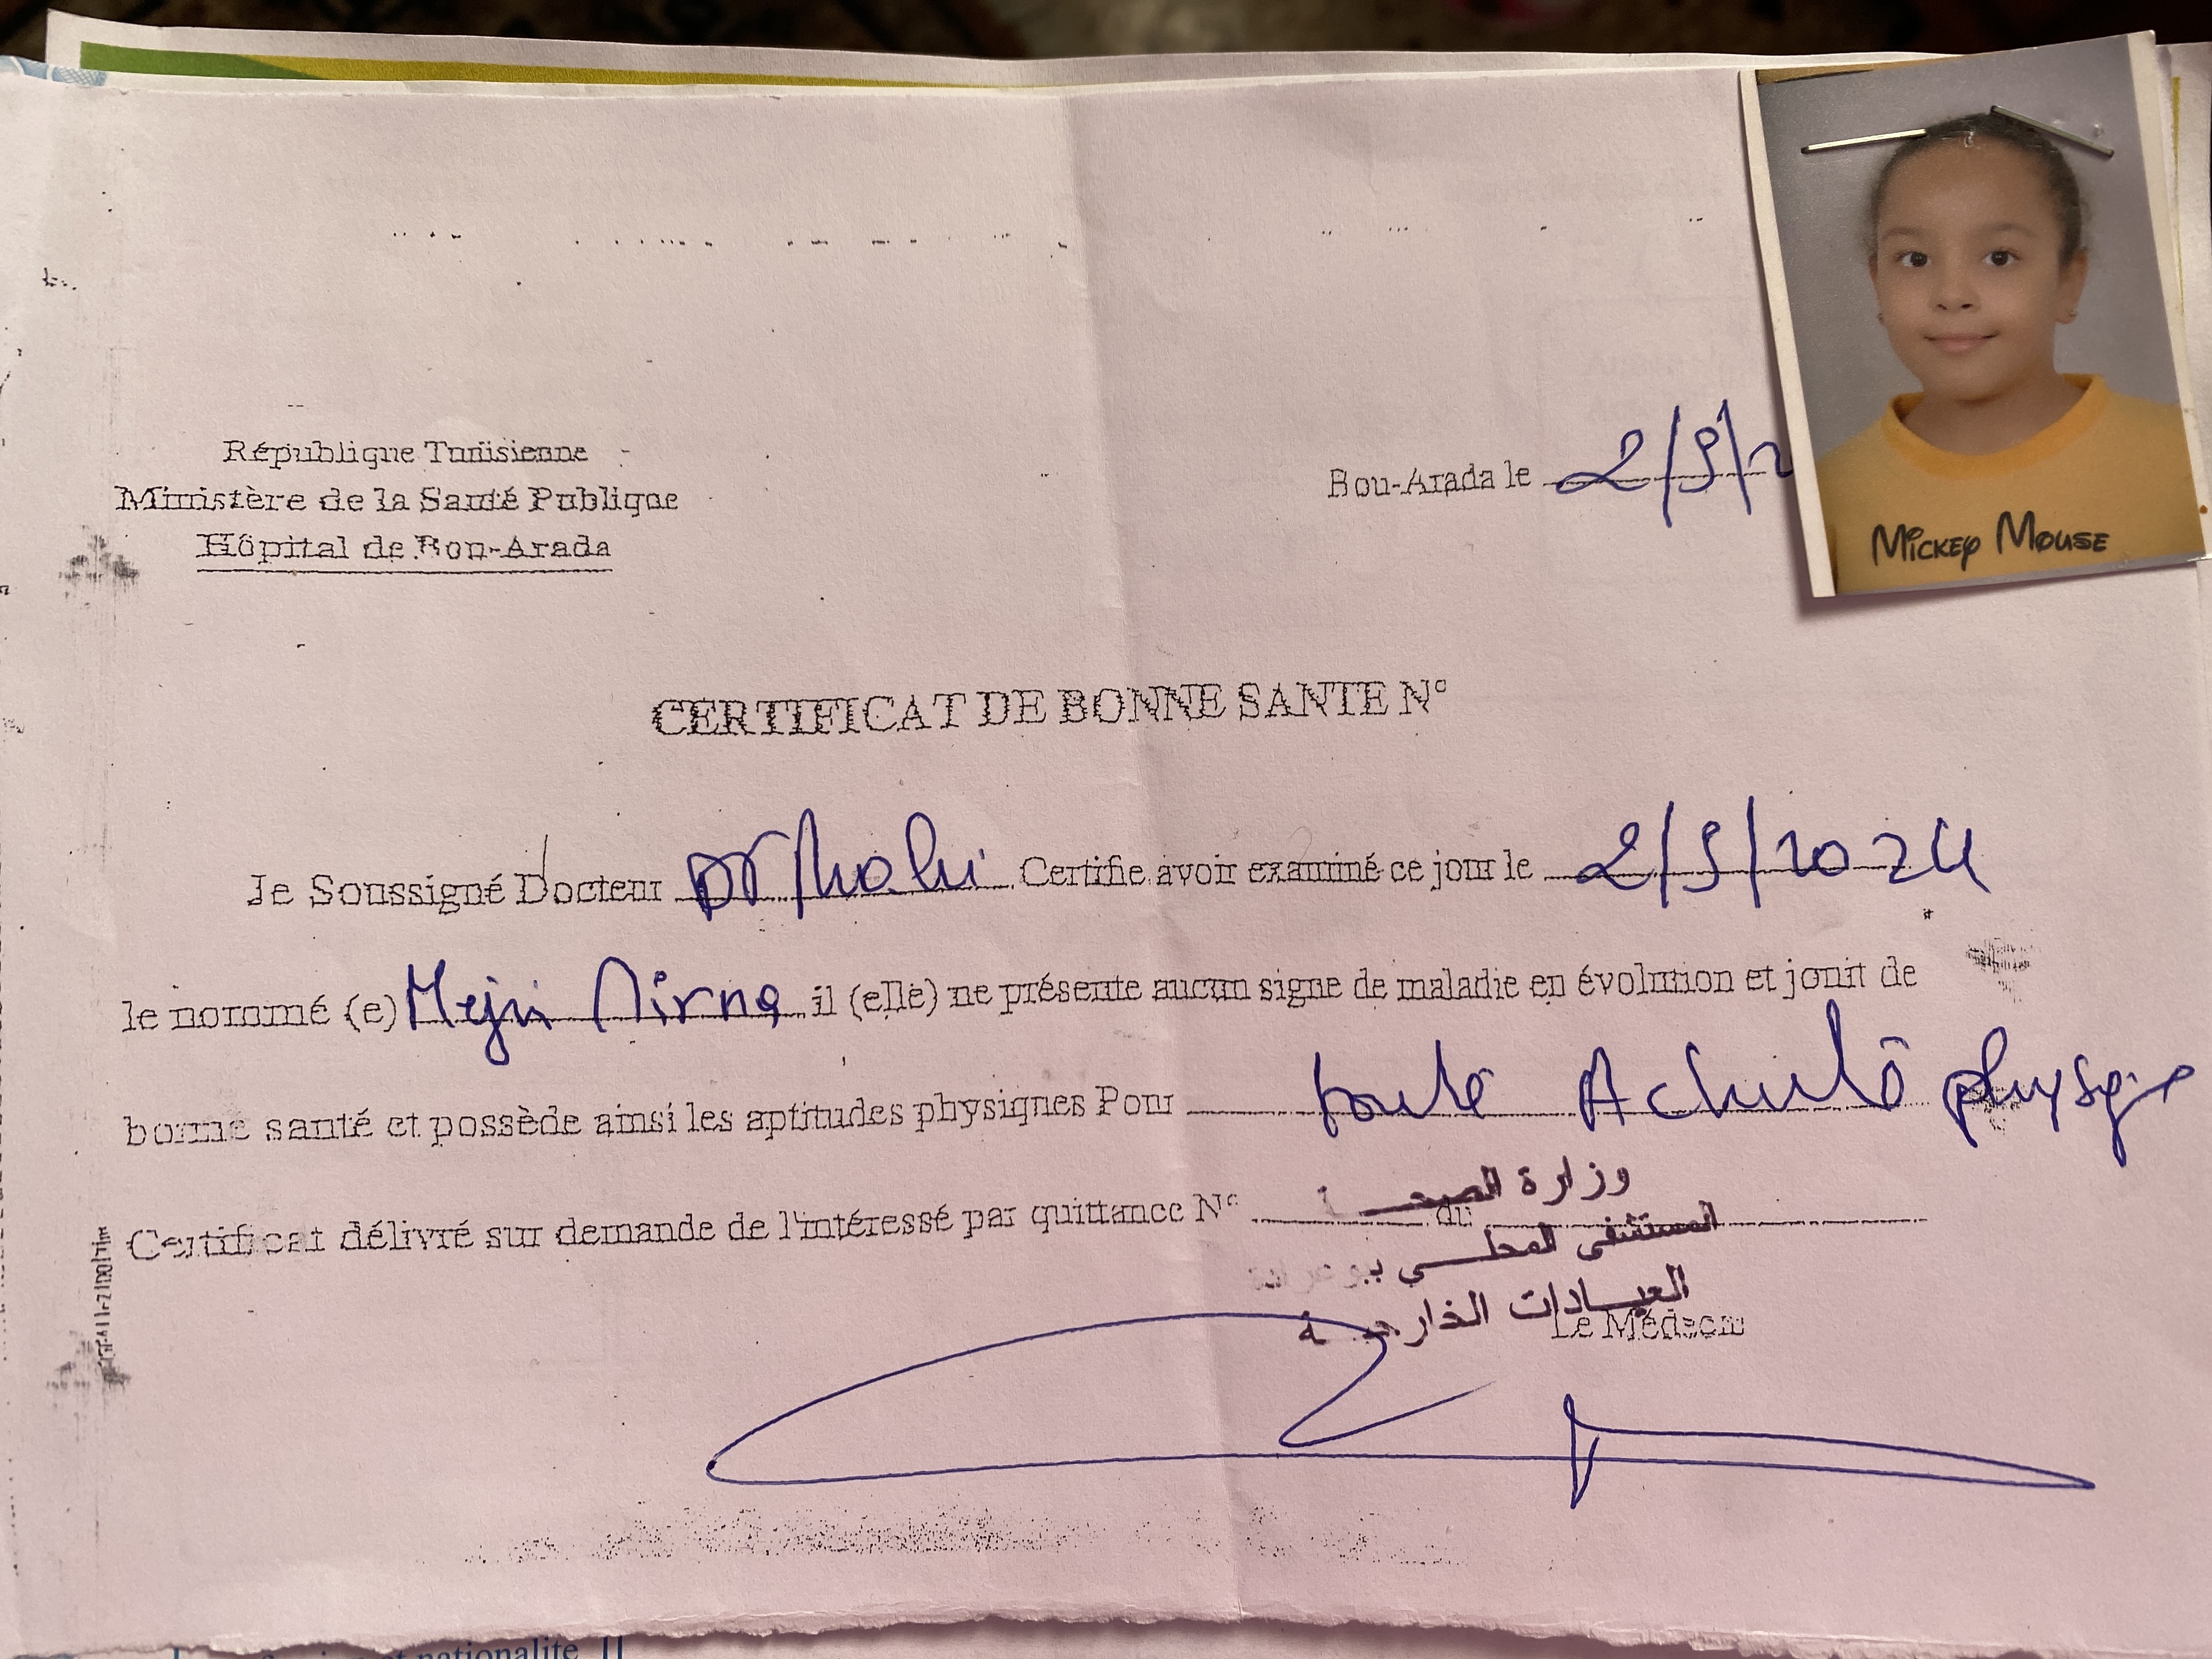 République Tunisienne
Ministère de la Santé Publique
Hôpital de Bou-Arada
Bou-Arada le 2/5/2
Mickey Mouse
CERTIFICAT DE BONNE SANTE N°
Je Soussigné Docteur Dr Certifie avoir examiné ce jour le 2/5/2024
le nommé (e) Mejri Mirna il (elle) ne présente aucun signe de maladie en évolution et jouit de
bonne santé et possède ainsi les aptitudes physiques Pour toute Activité physique
Certificat délivré sur demande de l'intéressé par quittance N° du
وزارة الصحة
المستشفى المحلي ببوعرادة
العيادات الخارجية
Le Médecin
nationalité